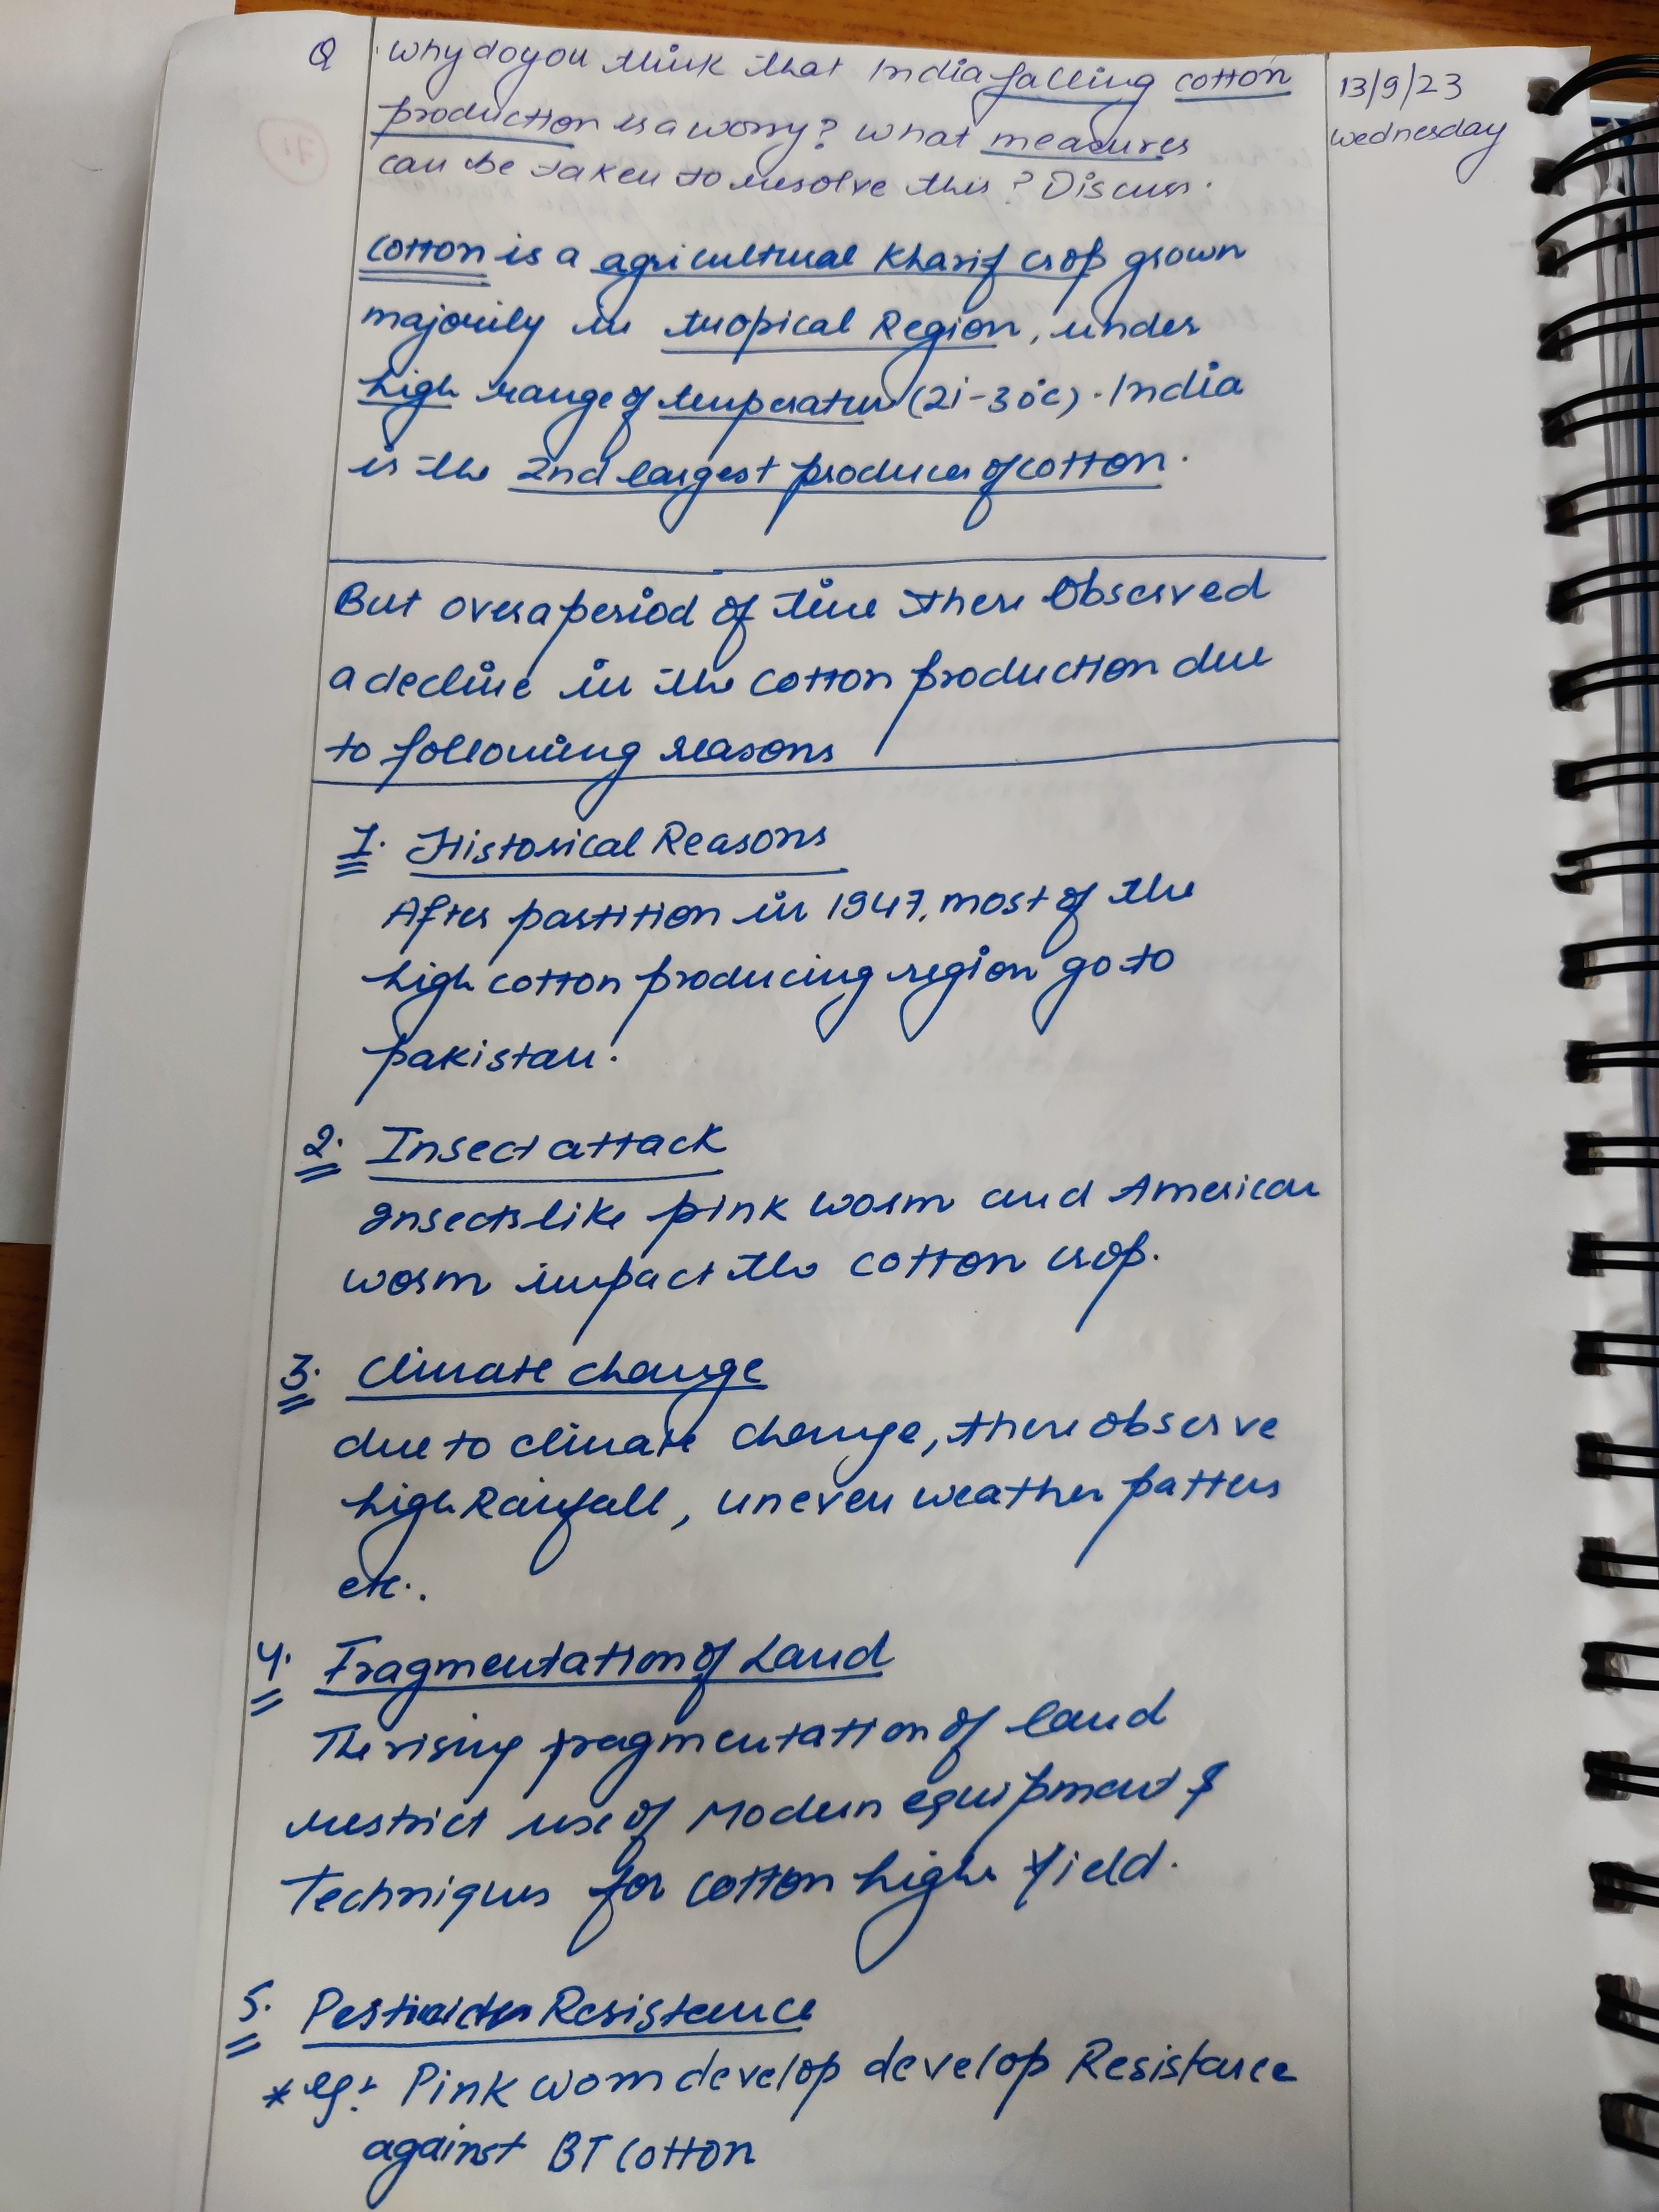 Q Why do you think that India falling cotton
production is a worry? What measures
can be taken to resolve this? Discuss.
13/9/23
Wednesday
Cotton is a agricultural Kharif crop grown
majorily in tropical Region, under
high range of temperature (21-30°C). India
is the 2nd largest producer of cotton.
But over a period of time there Observed
a decline in the cotton production due
to following reasons
1. Historical Reasons
After partition in 1947, most of the
high cotton producing region go to
pakistan.
2. Insect attack
Insects like pink worm and American
worm impact the cotton crop.
3. Climate change
due to climate change, there observe
high Rainfall, uneven weather patters
etc..
4. Fragmentation of Land
The rising fragmentation of land
restrict use of Modern equipment &
Techniques for cotton high Yield.
5. Resistance
* eg:- Pink worm develop develop Resistance
against BT Cotton